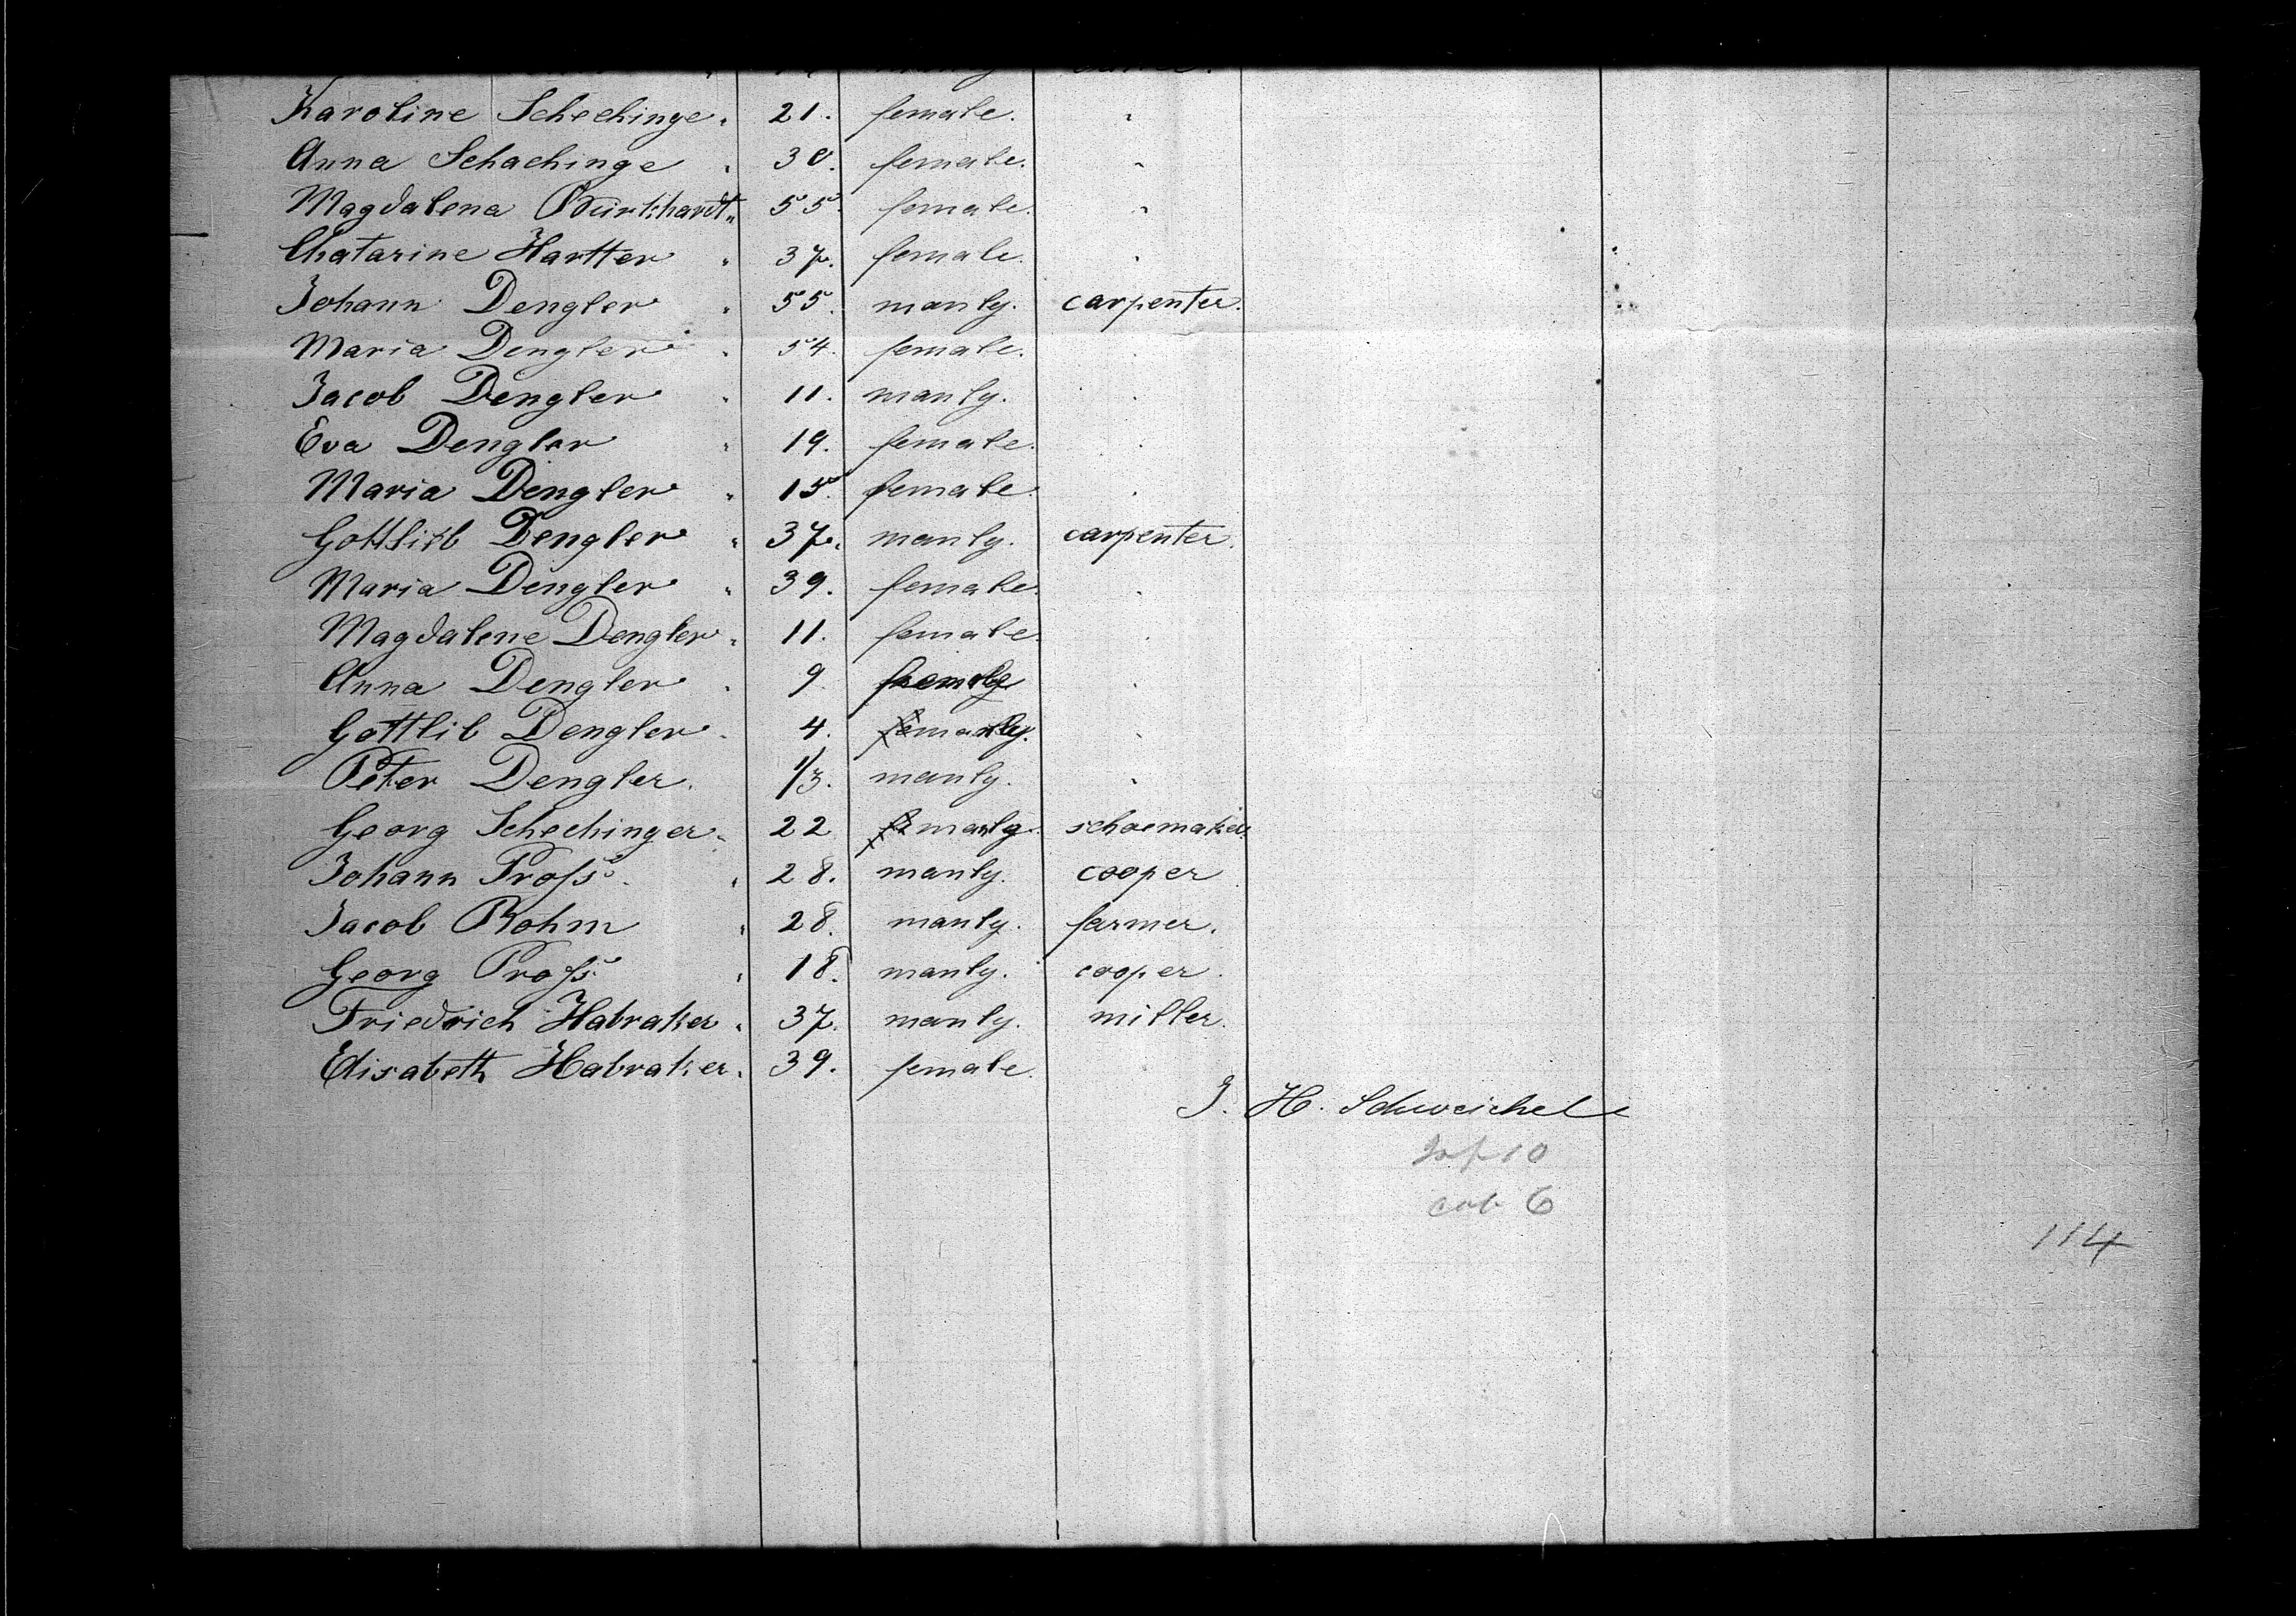 Karoline Schechinge " 21. female. "
Anna Schachinge " 30. female. "
Magdalena Burkhardt " 55. female. "
Chatarine Hartter " 37. female. "
Johann Dengler " 55. manly. carpenter.
Maria Dengler " 54. female. "
Jacob Dengler " 11. manly. "
Eva Dengler " 19. female. "
Maria Dengler " 15. female. "
Gottlieb Dengler " 37. manly. carpenter.
Maria Dengler " 39. female. "
Magdalene Dengler " 11. female. "
Anna Dengler " 9 "
Gottlib Dengler " 4. manly. "
Peter Dengler. 1/3. manly. "
Georg Schechinger " 22 manly. schoemaker.
Johann Pross " 28. manly. cooper
Jacob Rohm " 28. manly. farmer.
Georg Pross " 18. manly. cooper.
Friedrich Habraker " 37. manly. miller.
Elisabeth Habraker " 39. female.
J. H. Schweichel
10
cab 6
114